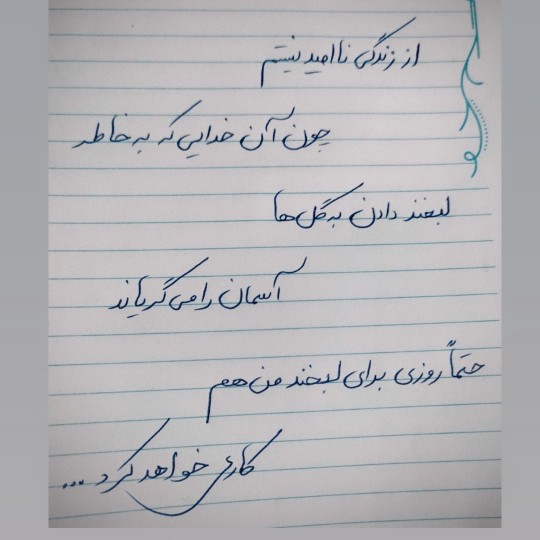 از زندگی ناامید نیستم
چون آن خدایی که به خاطر
لبخند دادن به گل‌ها
آسمان را می‌گریاند
حتماً روزی برای لبخند من هم
کاری خواهد کرد...